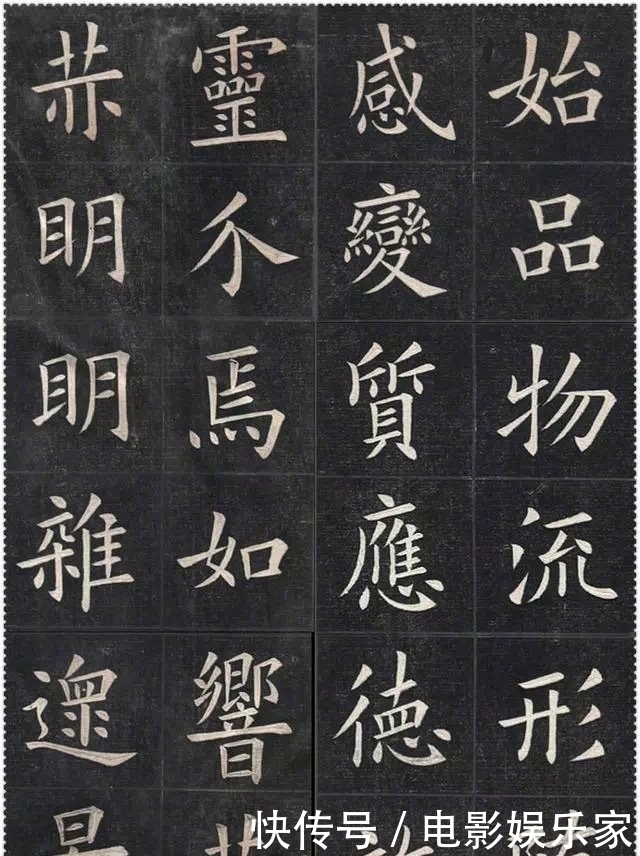 始品物流形
感變質應德
靈介焉如響
赫明明雜遝
快传号/电影娱乐家